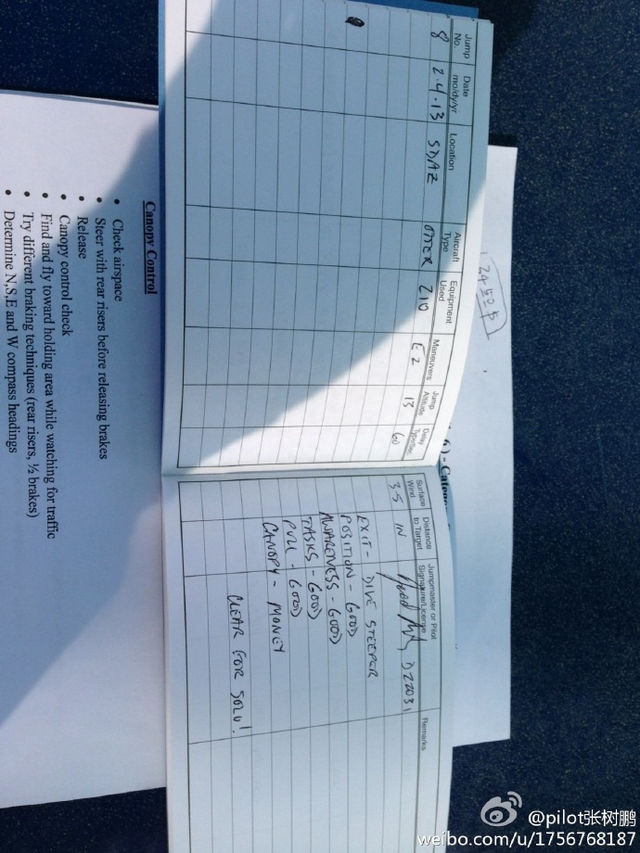 Jump No.
Date mo/dy/yr
Location
Aircraft Type
Equipment Used
Maneuvers
Jump Altitude
Delay
8
2.4.13
SDAZ
OTTER
210
E2
13
60
Surface Wind
Distance to Target
Jumpmaster or Pilot Signature/License
Remarks
3-5
IN
EXIT - DIVE STEEPER
POSITION - GOOD
AWARENESS - GOOD
TASKS - GOOD
PULL - GOOD
CANOPY - MONEY
CLEAR FOR SOLO!
Canopy Control
• Check airspace
• Steer with rear risers before releasing brakes
• Release
• Canopy control check
• Find and fly toward holding area while watching for traffic
• Try different braking techniques (rear risers, ½ brakes)
• Determine N,S,E and W compass headings
@pilot张树鹏
weibo.com/u/1756768187